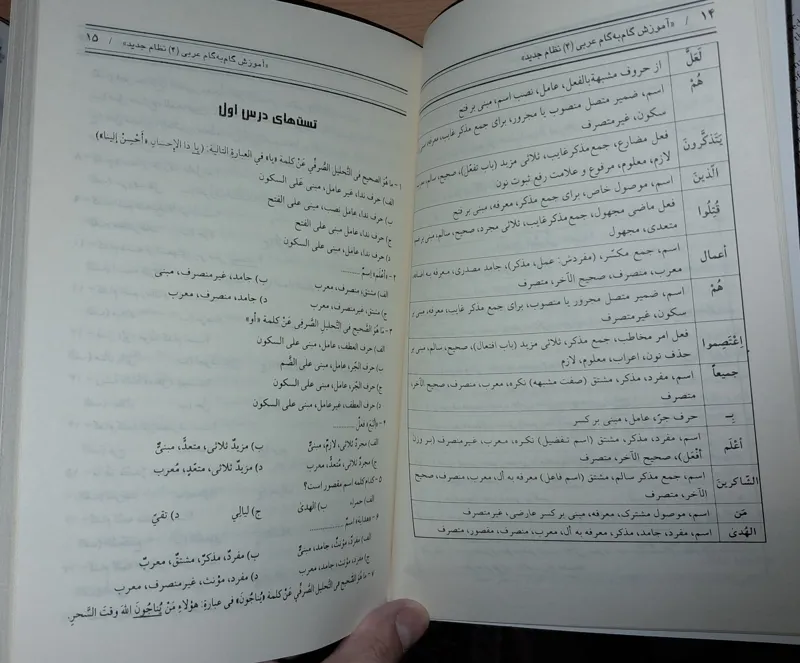 ۱۴ / «آموزش گام‌به‌گام عربی (۲) نظام جدید»
لَعَلَّ از حروف مشبهة بالفعل، عامل، نصب اسم، مبنی بر فتح
هُمْ اسم، ضمیر متصل منصوب یا مجرور، برای جمع مذکر غایب، معرفه
سکون، غیرمتصرف
یَتَذَکَّرونَ فعل مضارع، جمع مذکر غایب، ثلاثی مزید (باب تفعّل)، صحیح، سالم، معرب
لازم، معلوم، مرفوع و علامت رفع ثبوت نون
الَّذینَ اسم، موصول خاص، برای جمع مذکر، معرفه، مبنی بر فتح
قُتِلُوا فعل ماضی مجهول، جمع مذکر غایب، ثلاثی مجرد، صحیح، سالم، مبنی بر ضم
متعدی، مجهول
أعمال اسم، جمع مکسّر، (مفردش: عمل، مذکر)، جامد مصدری، معرفه به اضافه
معرب، منصرف، صحیح الآخر، متصرف
هُمْ اسم، ضمیر متصل مجرور یا منصوب، برای جمع مذکر غایب، معرفه، مبنی بر
سکون، غیرمتصرف
اِعْتَصِموا فعل امر مخاطب، جمع مذکر، ثلاثی مزید (باب افتعال)، صحیح، سالم، مبنی بر
حذف نون، اعراب، معلوم، لازم
جمیعاً اسم، مفرد، مذکر، مشتق (صفت مشبهه) نکره، معرب، منصرف، صحیح الآخر،
متصرف
بِـ حرف جرّ، عامل، مبنی بر کسر
أعْلَم اسم، مفرد، مذکر، مشتق (اسم تفضیل) نکره، معرب، غیرمنصرف (بر وزن
أفْعَل)، صحیح الآخر، متصرف
الشّاکرینَ اسم، جمع مذکر سالم، مشتق (اسم فاعل) معرفه به أل، معرب، منصرف، صحیح
الآخر، متصرف
مَن اسم، موصول مشترک، معرفه، مبنی بر کسر عارضی، غیرمتصرف
الهُدیٰ اسم، مفرد، جامد، مذکر، معرفه به أل، معرب، منصرف، مقصور، متصرف
«آموزش گام‌به‌گام عربی (۲) نظام جدید» / ۱۵
تست‌های درس اول
۱- ما هُوَ الصحیح فی التَّحلیل الصَّرفیِّ عَنْ کلمة «یا» فی العبارة التالیة: (یا ذا الإحسانِ «أحْسِنْ إلینا»)
الف) حرف نداء، غیرعامل، مبنی عَلی السکون
ب) حرف نداء، عامل نصب، مبنی علی الفتح
ج) حرف نداء، عامل مبنی علی الفتح
د) حرف نداء، عامل، مبنی علی السکون
۲- «أعْلَم» إسمٌ ........
الف) مشتق، منصرف، معرب ب) جامد، غیرمنصرف، مبنی
ج) مشتق، غیرمنصرف، معرب د) جامد، منصرف، معرب
۳- ما هُوَ الصَّحیح فی التَّحلیل الصَّرفی عَنْ کلمة «أو»
الف) حرف العطف، عامل، مبنی علی السکون
ب) حرف الجَر، عامل، مبنی علی الضَّم
ج) حرف الجَر، عامل، مبنی علی السکون
د) حرف العطف، غیرعامل، مبنی علی السکون
الف) مجردٌ ثلاثی، لازمٌ، مبنیٌّ ب) مزیدٌ ثلاثی، متعدٌّ، مبنیٌّ
ج) مجردٌ ثلاثی، مُتعدٌّ، معرب د) مزیدٌ ثلاثی، متعدٍ، مُعرب
۵- کدام کلمه اسم مقصور است؟
الف) حمراء ب) الهدیٰ ج) لیالِي د) تقيّ
الف) مفردٌ، مؤنثٌ، جامد، مبنیٌّ ب) مفردٌ، مذکرٌ، مشتقٌ، معربٌ
ج) مفرد، مؤنث، جامد، معرب د) مفرد، مؤنث، غیرمنصرف، معرب
۷- ما هُوَ الصَّحیح فی التحلیل الصَّرفیِّ عَنْ کلمة «یُناجُونَ» فی عبارة: هؤلاءِ مَنْ یُناجُونَ اللهَ وقتَ السَّحرِ.